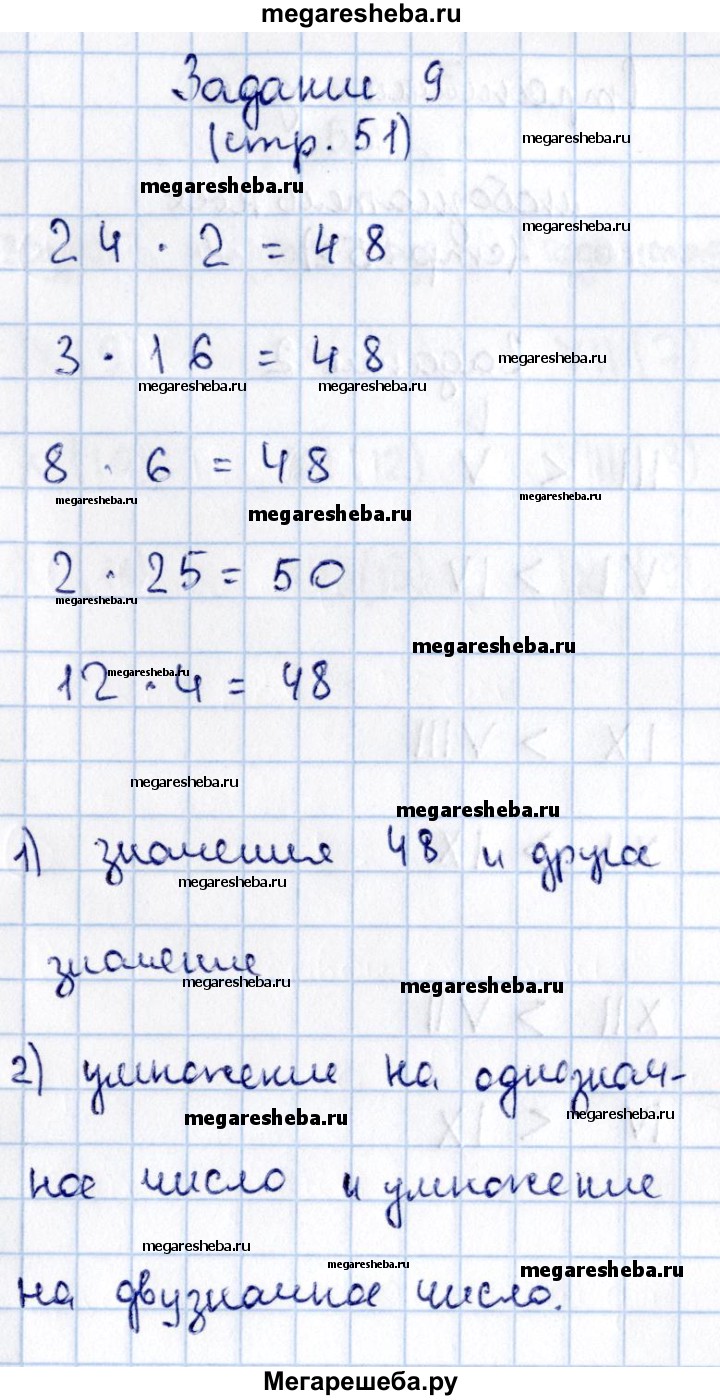 megaresheba.ru
Задание 9
(стр. 51)
megaresheba.ru
megaresheba.ru
megaresheba.ru
24 · 2 = 48
3 · 16 = 48
megaresheba.ru
megaresheba.ru megaresheba.ru
8 · 6 = 48
megaresheba.ru megaresheba.ru megaresheba.ru
2 · 25 = 50
megaresheba.ru
megaresheba.ru
12 · 4 = 48
megaresheba.ru
megaresheba.ru
megaresheba.ru
1) значения 48 и друга
megaresheba.ru
значение
megaresheba.ru megaresheba.ru
2) умножение на однознач-
megaresheba.ru megaresheba.ru
ное число и умножение
megaresheba.ru megaresheba.ru megaresheba.ru
на двузначное число.
Мегарешеба.ру